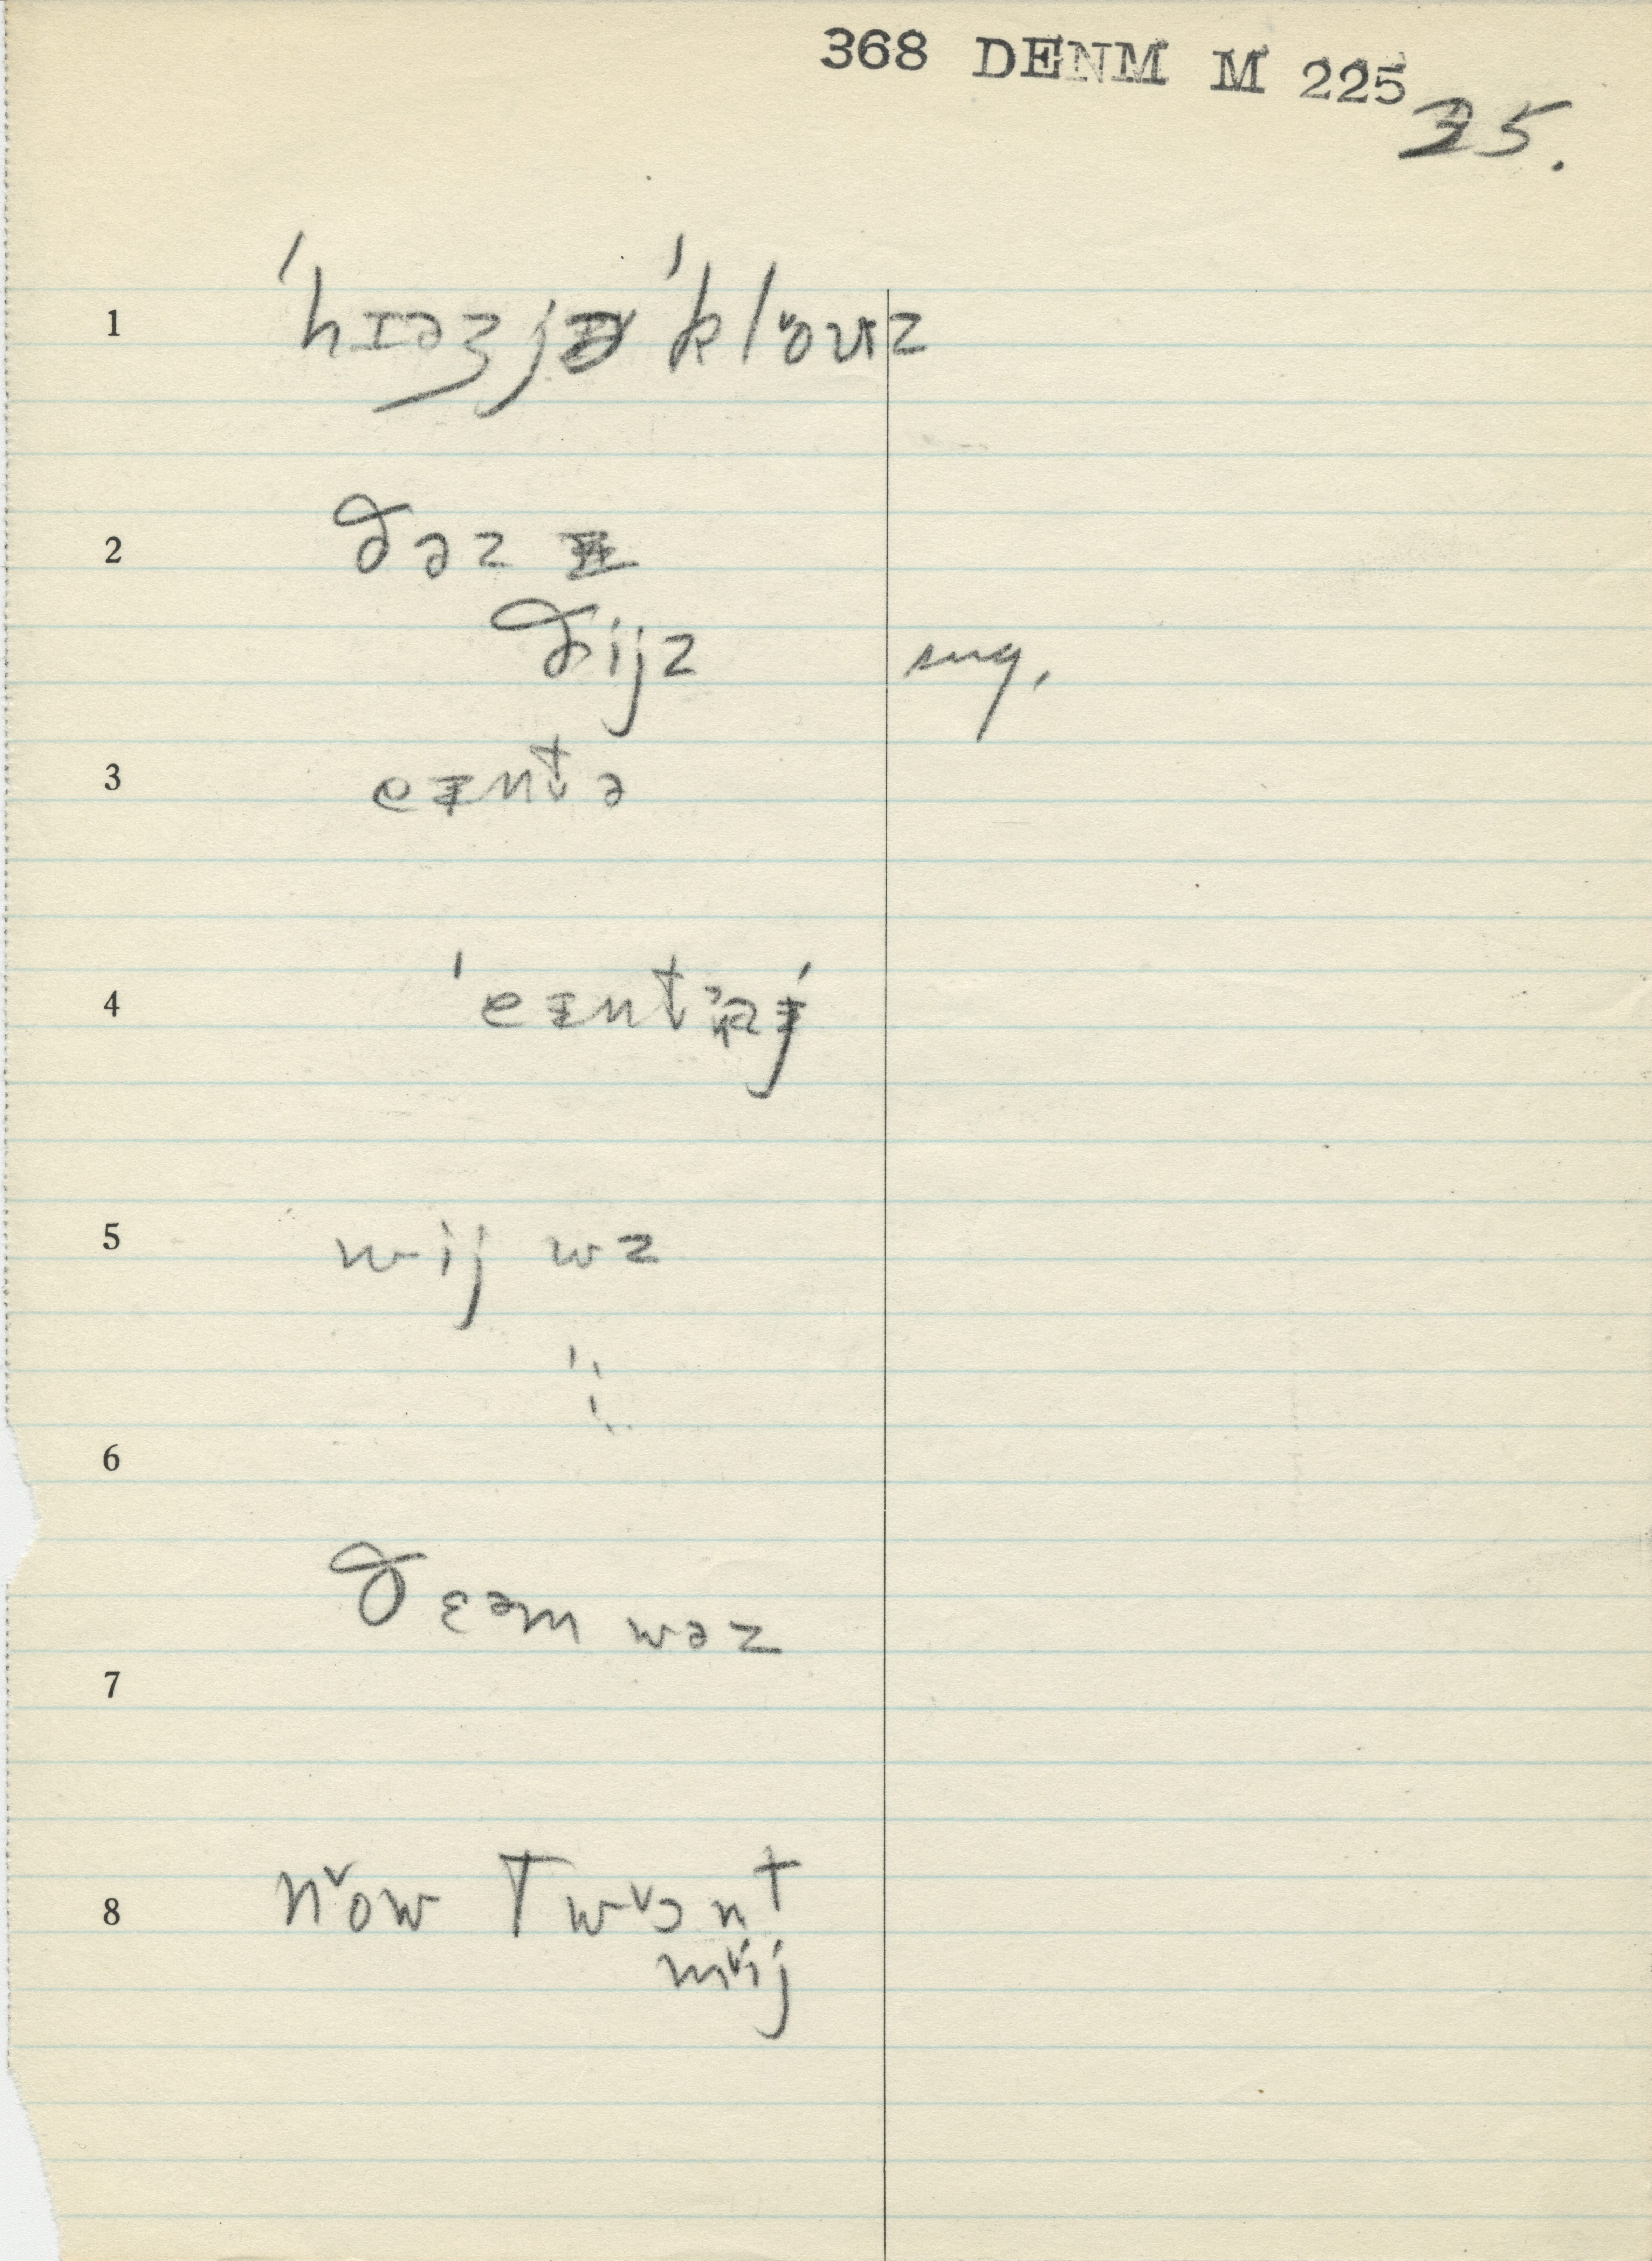 368 DENM M 225
35.
1 ˈhɪəʒjə ˈklouz
2 ðəz
ðijz sug.
3 eɪntə
4 ˈeɪnt
5 wij wz
6
ðɛəm wəz
7
8 now twɔnt
mij